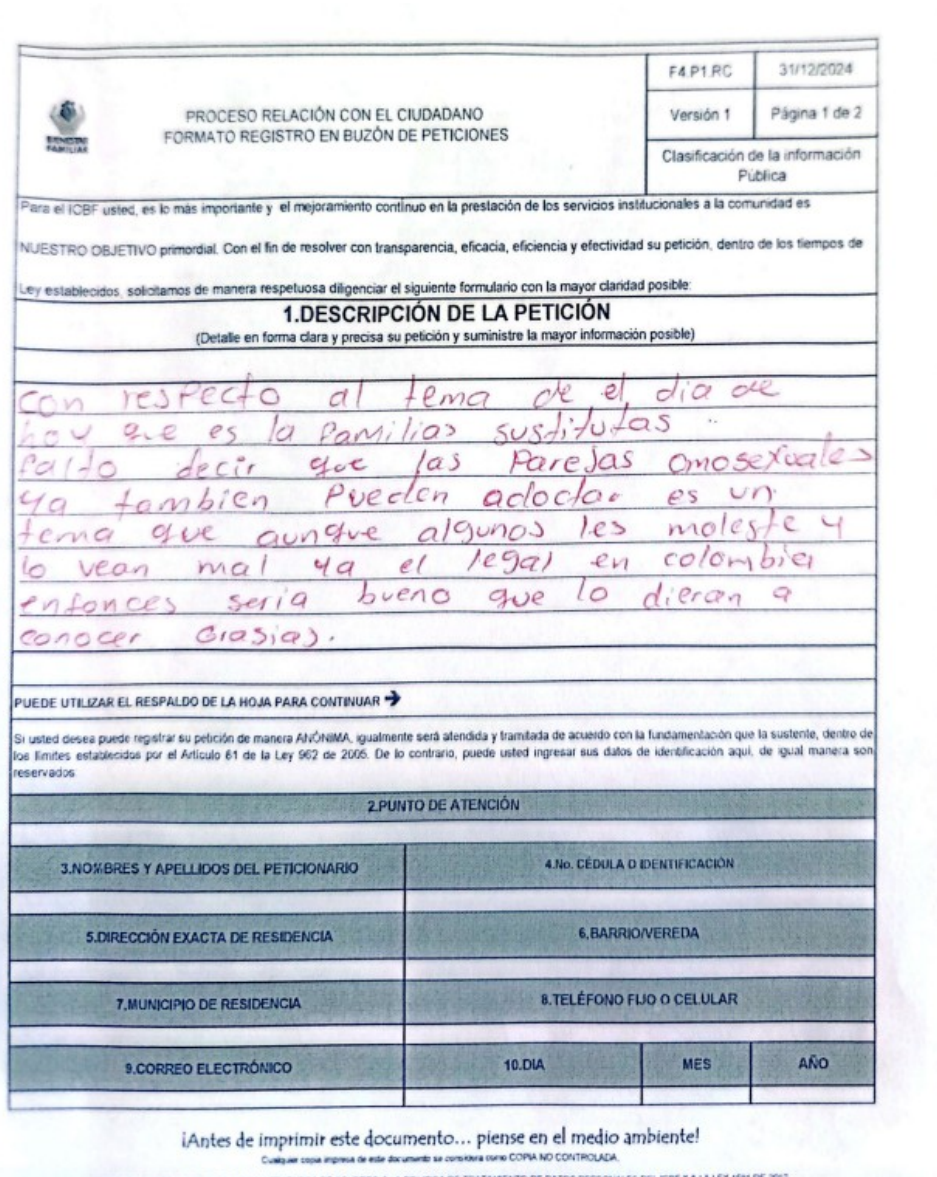 BIENESTAR
FAMILIAR
PROCESO RELACIÓN CON EL CIUDADANO
FORMATO REGISTRO EN BUZÓN DE PETICIONES
F4.P1.RC
31/12/2024
Versión 1
Página 1 de 2
Clasificación de la información
Pública
Para el ICBF usted, es lo más importante y el mejoramiento continuo en la prestación de los servicios institucionales a la comunidad es
NUESTRO OBJETIVO primordial. Con el fin de resolver con transparencia, eficacia, eficiencia y efectividad su petición, dentro de los tiempos de
Ley establecidos, solicitamos de manera respetuosa diligenciar el siguiente formulario con la mayor claridad posible:
1.DESCRIPCIÓN DE LA PETICIÓN
(Detalle en forma clara y precisa su petición y suministre la mayor información posible)
con respecto al tema de el dia de
hoy que es la familias sustitutas
falto decir que las Parejas omosexuales
ya tambien Pueden adoctar es un
tema que aunque algunos les moleste y
lo vean mal ya el legal en colombia
entonces seria bueno que lo dieran a
conocer Grasias.
PUEDE UTILIZAR EL RESPALDO DE LA HOJA PARA CONTINUAR →
Si usted desea puede registrar su petición de manera ANÓNIMA, igualmente será atendida y tramitada de acuerdo con la fundamentación que la sustente, dentro de
los límites establecidos por el Artículo 81 de la Ley 962 de 2005. De lo contrario, puede usted ingresar sus datos de identificación aquí, de igual manera son
reservados
2.PUNTO DE ATENCIÓN
3.NOMBRES Y APELLIDOS DEL PETICIONARIO
4.No. CÉDULA O IDENTIFICACIÓN
5.DIRECCIÓN EXACTA DE RESIDENCIA
6.BARRIO/VEREDA
7.MUNICIPIO DE RESIDENCIA
8.TELÉFONO FIJO O CELULAR
9.CORREO ELECTRÓNICO
10.DIA
MES
AÑO
¡Antes de imprimir este documento... piense en el medio ambiente!
Cualquier copia impresa de este documento se considera como COPIA NO CONTROLADA.